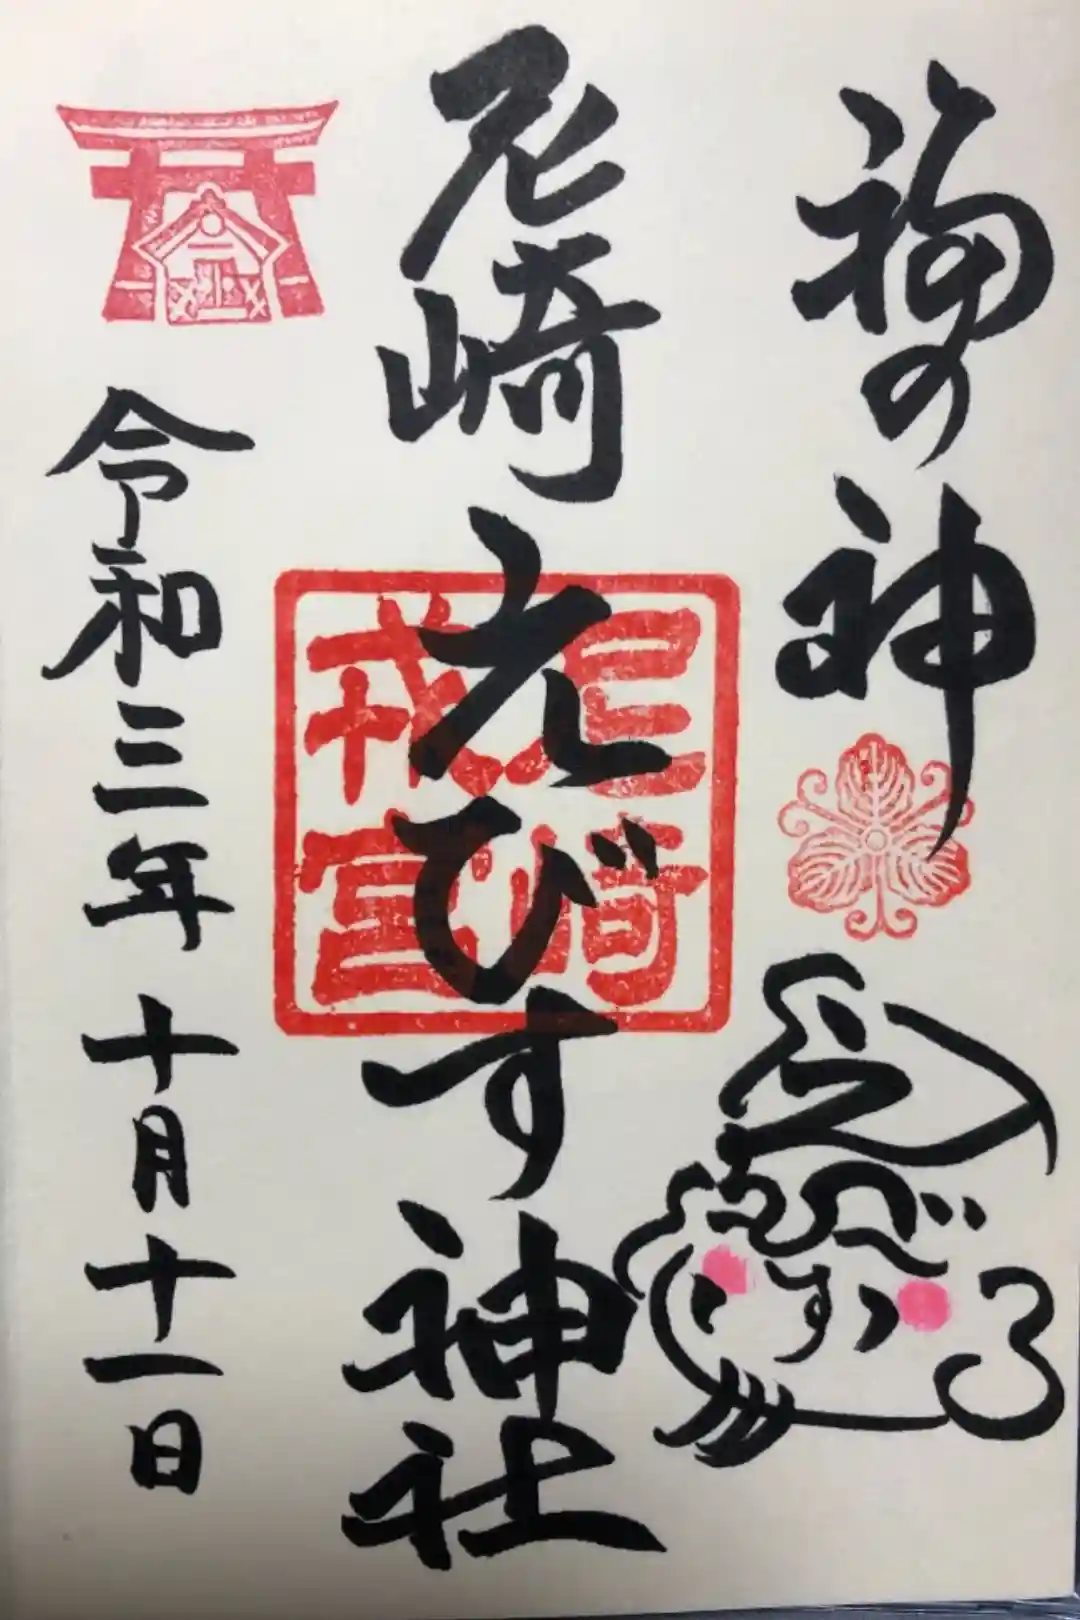 福の神
えびす
尼崎えびす神社
尼崎
戎宮
令和三年十月十一日